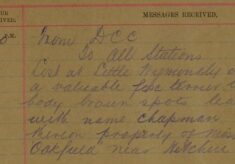 MESSAGES RECEIVED.
RECEIVED.
P.M.
From D.C.C.
to All Stations
Lost at Little Wymondly
a valuable fox terrier
body brown spots
with name Chapman
thereon property of Miss
Oakfield near Hitchin